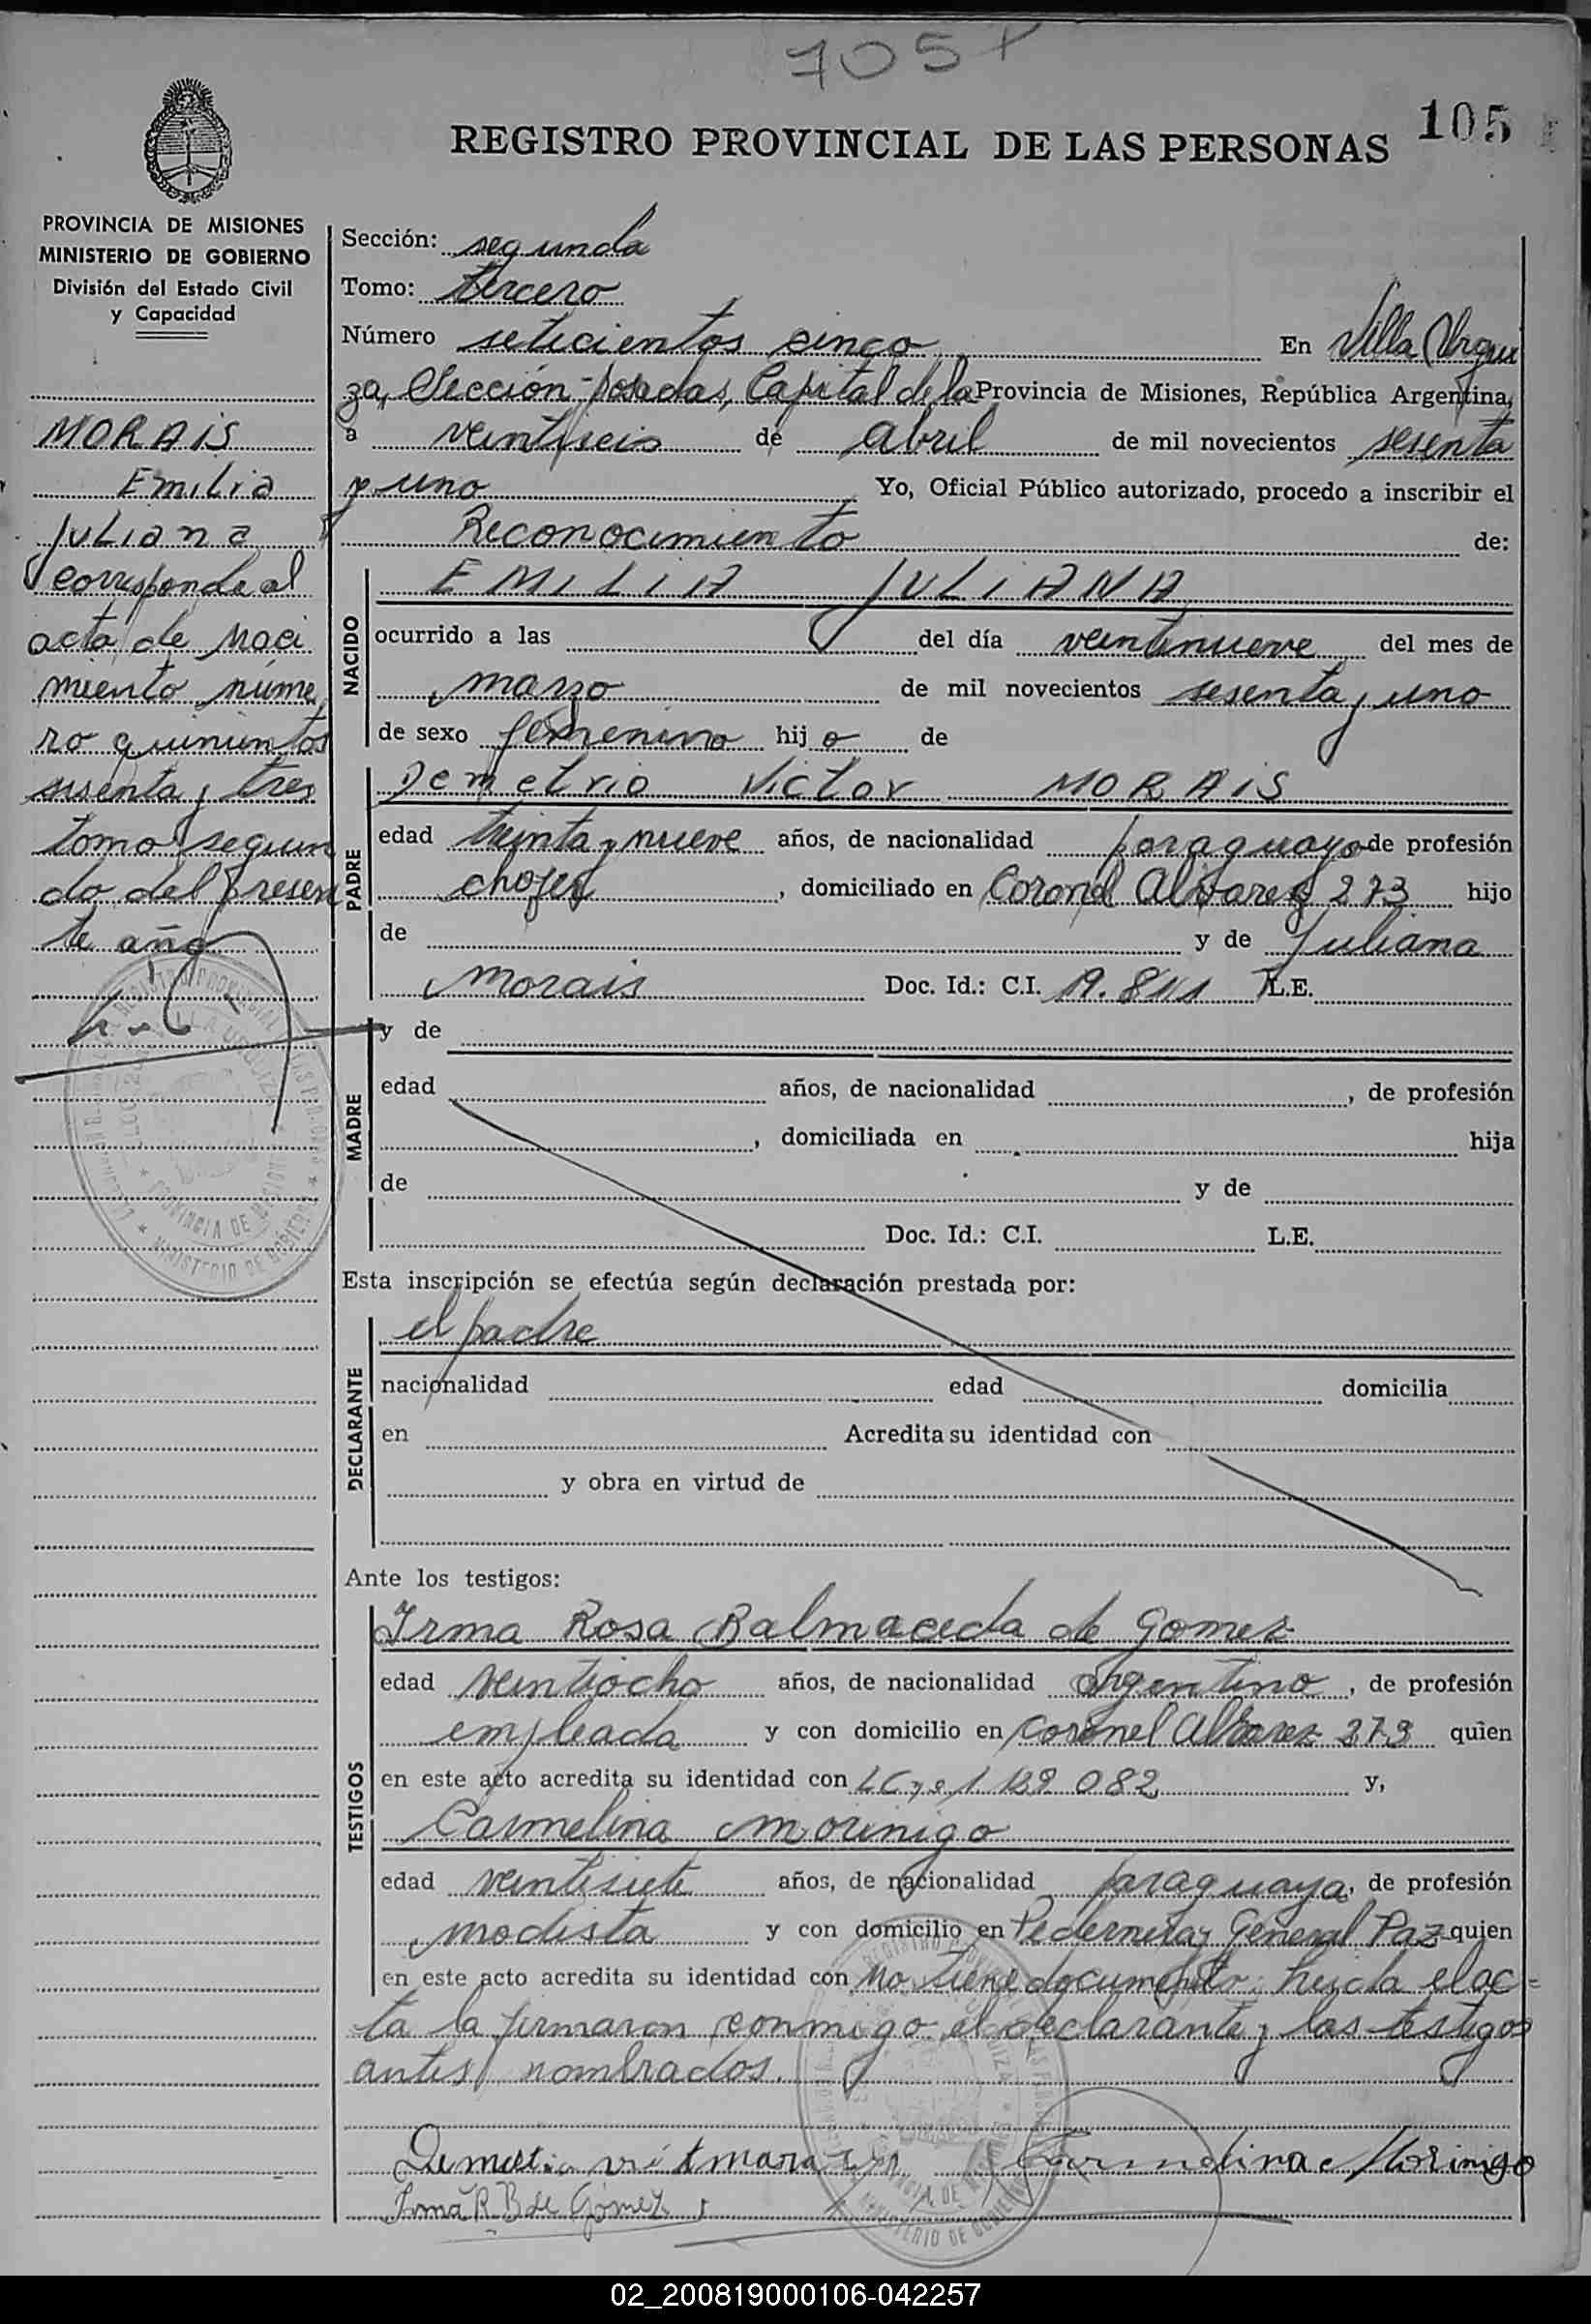 705
105
REGISTRO PROVINCIAL DE LAS PERSONAS
PROVINCIA DE MISIONES
MINISTERIO DE GOBIERNO
División del Estado Civil
y Capacidad
MORAIS
Emilia
Juliana
corresponde al
acta de naci
miento núme
ro quinientos
sesenta y tres
tomo segun
do del presen
te año
Sección: segunda
Tomo: tercero
Número seticientos cinco En Villa Urqui
za, Sección Posadas, Capital de la Provincia de Misiones, República Argentina,
a veintiseis de abril de mil novecientos sesenta
y uno Yo, Oficial Público autorizado, procedo a inscribir el
Reconocimiento de:
NACIDO
EMILIA JULIANA
ocurrido a las del día veintinueve del mes de
marzo de mil novecientos sesenta y uno
de sexo femenino hij a de
PADRE
Demetrio Victor MORAIS
edad treinta y nueve años, de nacionalidad paraguayo de profesión
chofer, domiciliado en Coronel Alvarez 273 hijo
de y de Juliana
Morais Doc. Id.: C.I. 19.811 L.E.
MADRE
y de
edad años, de nacionalidad , de profesión
, domiciliada en hija
de y de
Doc. Id.: C.I. L.E.
Esta inscripción se efectúa según declaración prestada por:
DECLARANTE
el padre
nacionalidad edad domicilia
en Acredita su identidad con
y obra en virtud de
Ante los testigos:
TESTIGOS
Irma Rosa Balmaceda de Gomez
edad veintiocho años, de nacionalidad argentino, de profesión
empleada y con domicilio en Coronel Alvarez 273 quien
en este acto acredita su identidad con 1.129.082 y,
Carmelina Morinigo
edad veintisiete años, de nacionalidad paraguaya, de profesión
modista y con domicilio en Pedernera y General Paz quien
en este acto acredita su identidad con No tiene documento. Leida el ac=
ta la firmaron conmigo el declarante y los testigos
antes nombrados.
Carmelina Morinigo
Irma R. B de Gomez
02_200819000106-042257